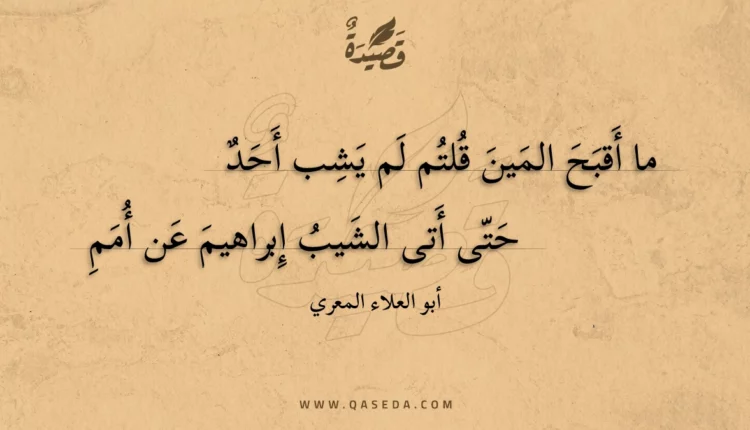 قَصِيدَةٌ
ما أَقبَحَ المَينَ قُلتُم لَم يَشِب أَحَدٌ
حَتّى أَتى الشَيبُ إِبراهيمَ عَن أُمَمِ
أبو العلاء المعري
WWW.QASEDA.COM